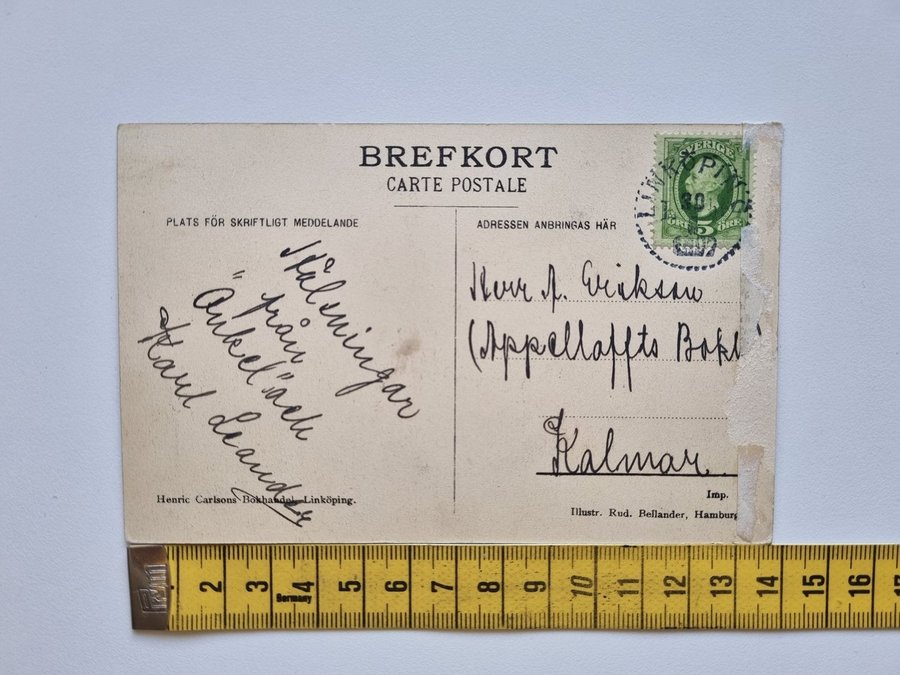 BREFKORT
CARTE POSTALE
PLATS FÖR SKRIFTLIGT MEDDELANDE
ADRESSEN ANBRINGAS HÄR
SVERIGE
5
ÖRE
LINKÖPING
30
Hälsningar
från
"Onkel" och
Karl Leander
Herr A. Erikson
(Appelloffts Bokh
Kalmar.
Henric Carlsons Bokhandel, Linköping.
Imp.
Illustr. Rud. Bellander, Hamburg
2 3 4 5 6 7 8 9 10 11 12 13 14 15 16 17
Germany